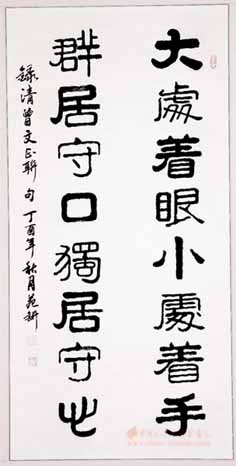 大處着眼小處着手
群居守口獨居守心
錄清曾文正聯句丁酉年秋月苑耕